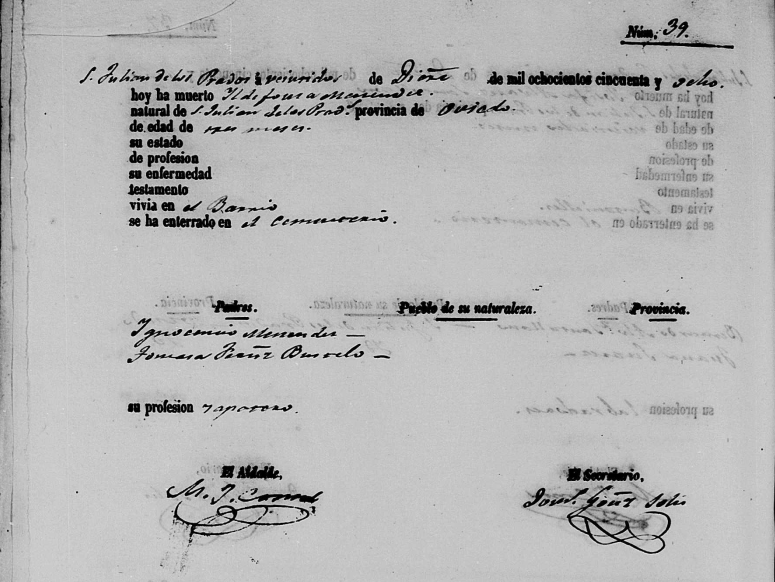 Núm, 39.
S. Julian de los Prados á veintidos de Dicre de mil ochocientos cincuenta y ocho.
hoy ha muerto Ildefonsa Menendez.
natural de S. Julian de los Prads provincia de Oviedo.
de edad de tres meses.
su estado
de profesion
su enfermedad
testamento
vivia en el Barrio
se ha enterrado en el Cementerio.
Padres. Pueblo de su naturaleza. Provincia.
Ygnocencio Menendez —
Tomasa —
su profesion zapatero.
El Alcalde, El Secretario,
M. J.